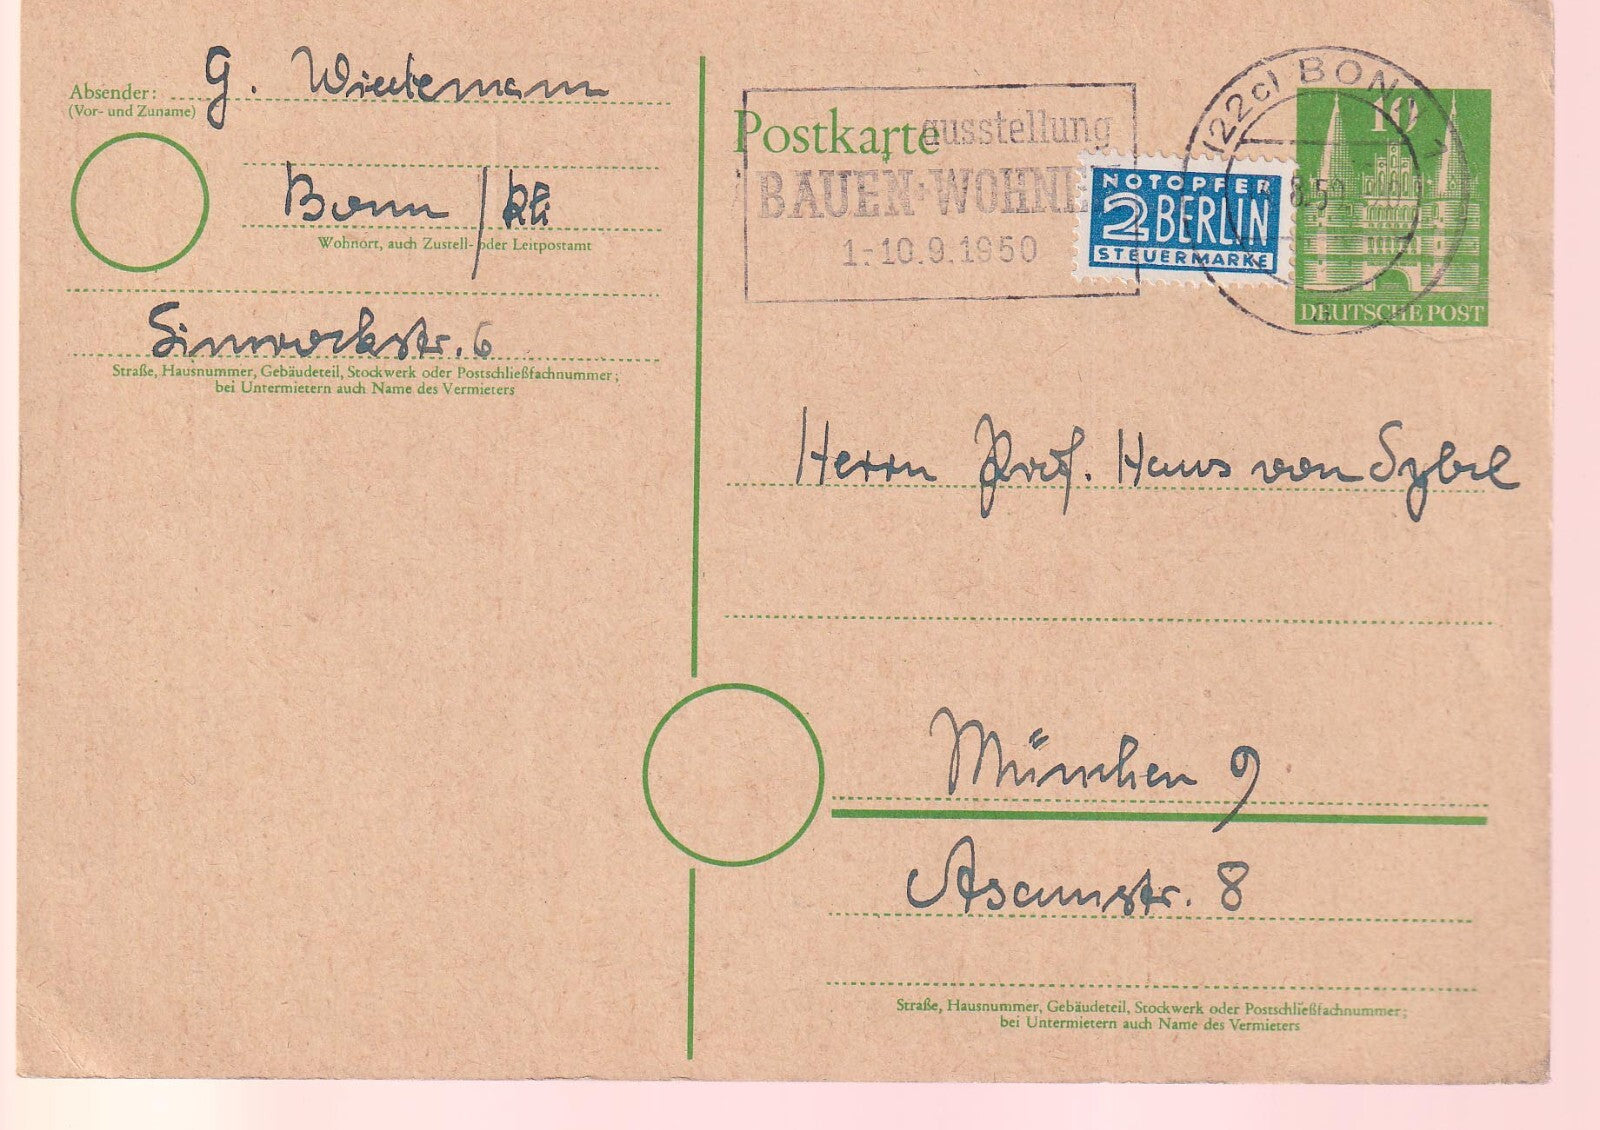 Absender: G. Wiedemann
(Vor- und Zuname)
Bonn / Rh
Wohnort, auch Zustell- oder Leitpostamt
Simrockstr. 6
Straße, Hausnummer, Gebäudeteil, Stockwerk oder Postschließfachnummer;
bei Untermietern auch Name des Vermieters
Postkarte
ausstellung
BAUEN + WOHNE
1.-10.9.1950
NOTOPFER
2 BERLIN
STEUERMARKE
(22c) BONN 1
8.50
10
DEUTSCHE POST
Herrn Prof. Hans von Sybel
München 9
Asamstr. 8
Straße, Hausnummer, Gebäudeteil, Stockwerk oder Postschließfachnummer;
bei Untermietern auch Name des Vermieters